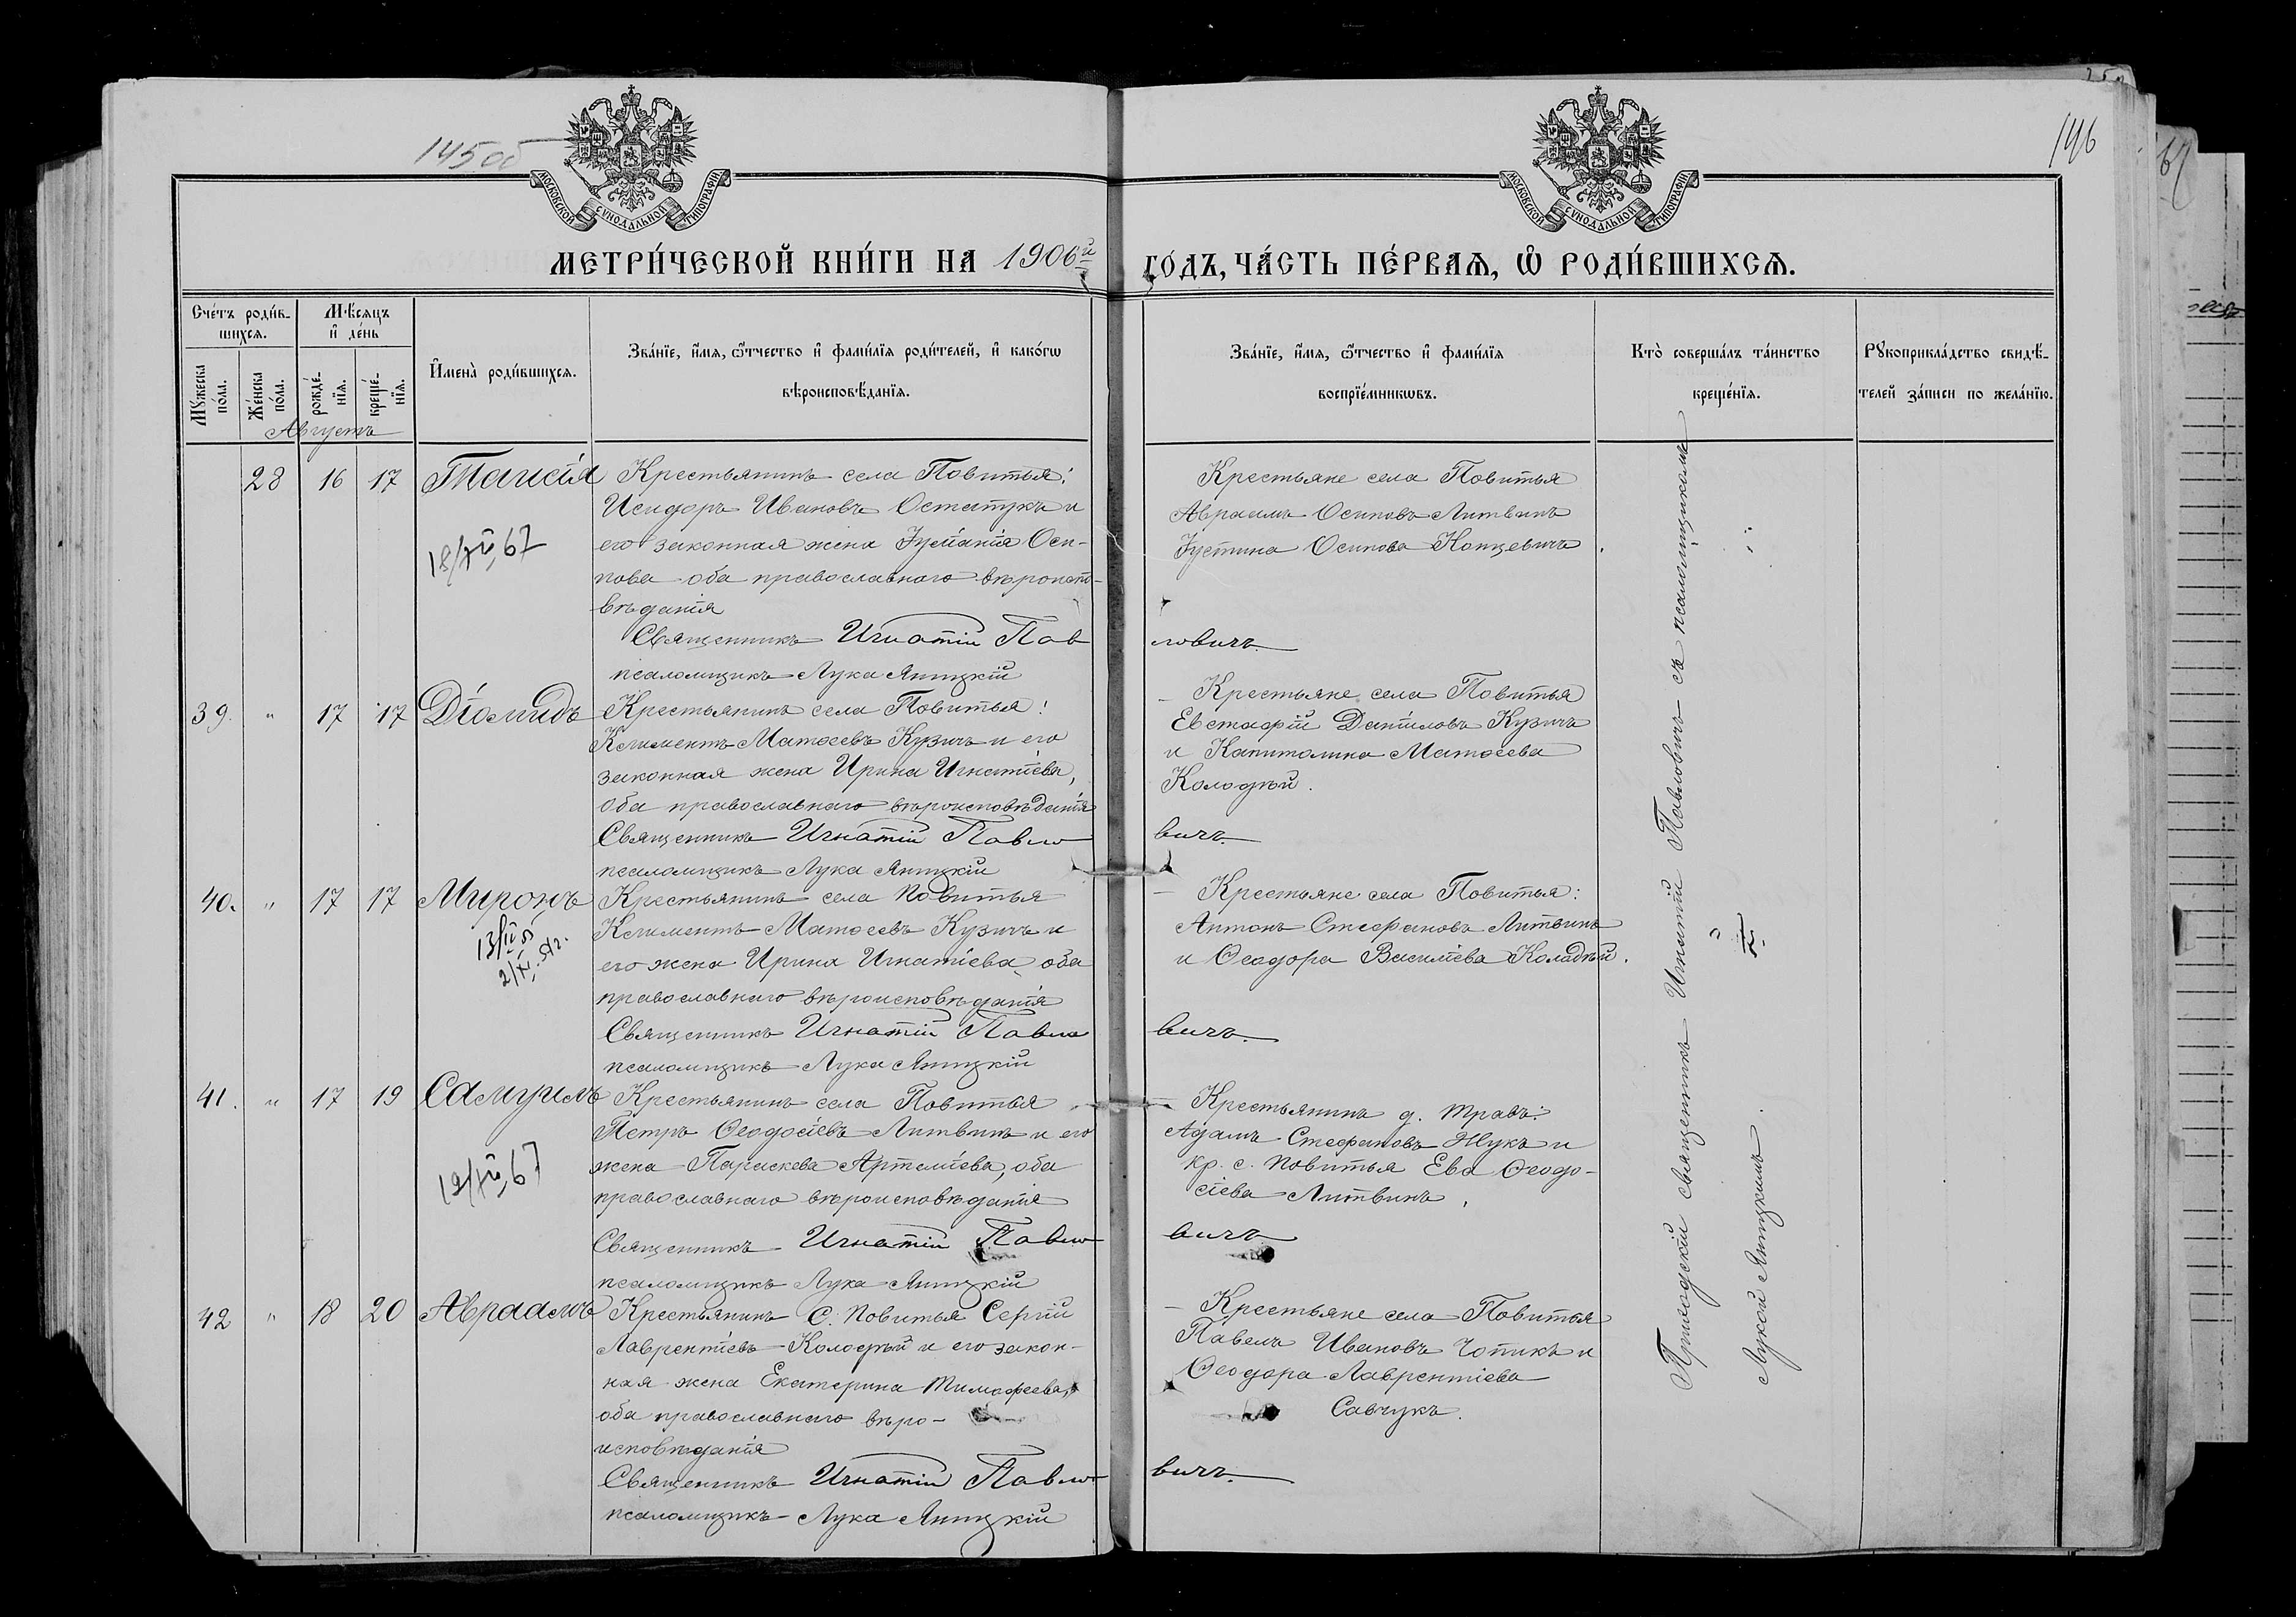 145об
196
МОСКОВСКОЙ СѴНОДАЛЬНОЙ ТИПОГРАФІИ
МОСКОВСКОЙ СѴНОДАЛЬНОЙ ТИПОГРАФІИ
МЕТРИ́ЧЕСКОЙ КНИ́ГИ НА 1906й ГО́ДЪ, ЧА́СТЬ ПЕ́РВАѦ, Ѡ҆ РОДИ́ВШИХСѦ.
Сче́тъ роди́в-
шихсѧ.
Мꙋ́жеска по́ла.
Же́нска по́ла.
Мѣ́сѧцъ
и҆ де́нь
рожде́-
нїѧ.
креще́-
нїѧ.
И҆мена̀ роди́вшихсѧ.
Зва́нїе, и҆́мѧ, ѻ҆́тчество и҆ фами́лїѧ роди́телей, и҆ како́гѡ
вѣроисповѣ́данїѧ.
Зва́нїе, и҆́мѧ, ѻ҆́тчество и҆ фами́лїѧ
воспрїе́мникѡвъ.
Кто̀ соверша́лъ та́инство
креще́нїѧ.
Рꙋкоприкла́дство свидѣ́-
телей за́писи по жела́нїю.
Августъ
28 16 17 Таисія
Крестьянинъ села Повитья:
Исидоръ Ивановъ Остапукъ и
его законная жена Іуліанія Оси-
пова оба православнаго вѣроиспо-
вѣданія
Священникъ Игнатій Павловичъ
псаломщикъ Лука Яницкій
Крестьяне села Повитья
Авраамъ Осиповъ Литвинъ
Іустина Осипова Концевичъ.
39. " 17 17 Діомидъ
Крестьянинъ села Повитья:
Климентъ Матѳеевъ Кузичъ и его
законная жена Ирина Игнатіева,
оба православнаго вѣроисповѣданія
Священникъ Игнатій Павловичъ.
псаломщикъ Лука Яницкій
Крестьяне села Повитья
Евстафій Даніиловъ Кузичъ
и Капитолина Матѳеева
Колодѣй.
40. " 17 17 Миронъ
Крестьянинъ села Повитья
Климентъ Матѳеевъ Кузичъ и
его жена Ирина Игнатіева, оба
православнаго вѣроисповѣданія
Священникъ Игнатій Павловичъ.
псаломщикъ Лука Яницкій
Крестьяне села Повитья:
Антонъ Стефановъ Литвинъ
и Ѳеодора Василіева Коладѣй.
41. " 17 19 Самуилъ
Крестьянинъ села Повитья
Петръ Ѳеодосіевъ Литвинъ и его
жена Параскева Артеміева, оба
православнаго вѣроисповѣданія
Священникъ Игнатій Павловичъ
псаломщикъ Лука Яницкій
Крестьянинъ д. Травъ:
Адамъ Стефановъ Жукъ и
кр. с. Повитья Ева Ѳеодо-
сіева Литвинъ.
42 " 18 20 Авраамъ
Крестьянинъ с. Повитья Сергій
Лаврентіевъ Колодѣй и его закон-
ная жена Екатерина Тимофеева,
оба православнаго вѣро-
исповѣданія
Священникъ Игнатій Павловичъ.
псаломщикъ Лука Яницкій
Крестьяне села Повитья
Павелъ Ивановъ Чопикъ и
Ѳеодора Лаврентіева
Савчукъ.
Приходскій священникъ Игнатій Павловичъ съ псаломщикомъ
Лукой Яницкимъ.